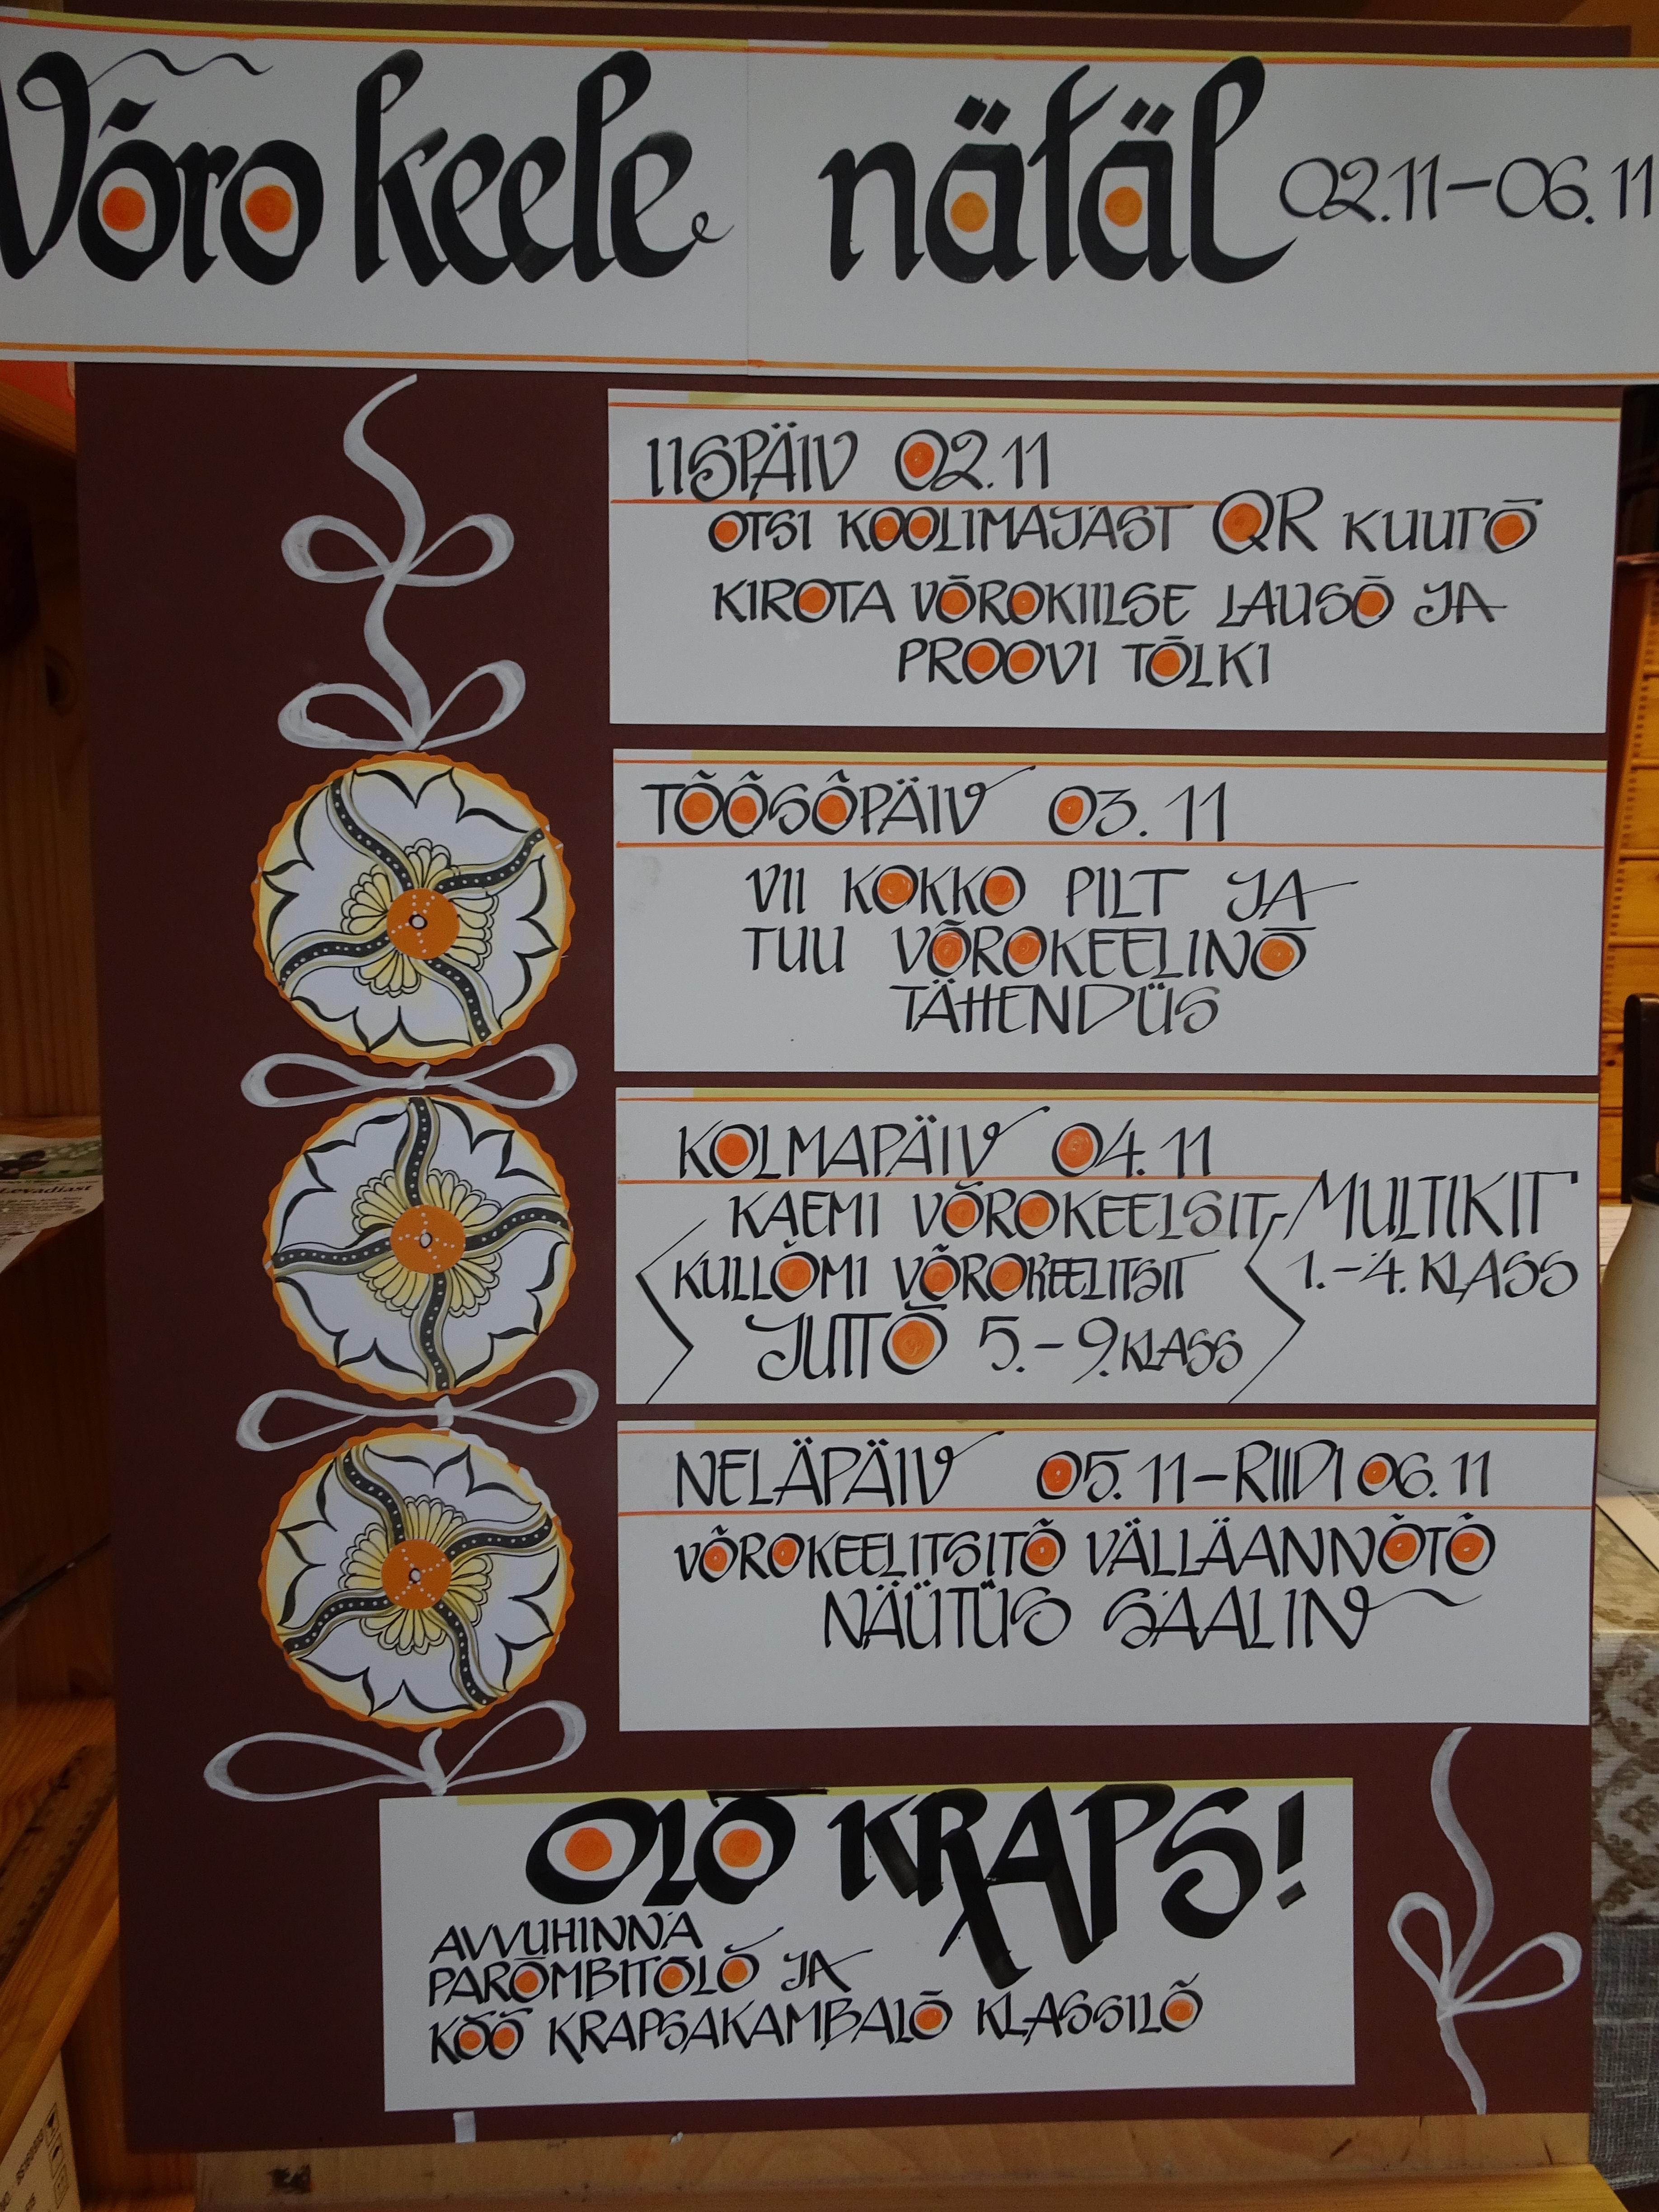 Võro keele nätäl 02.11-06.11
IISPÄIV 02.11
OTSI KOOLIMAJAST QR KUUTÕ
KIROTA VÕROKIILSE LAUSÕ JA
PROOVI TÕLKI
TÕÕSÕPÄIV 03.11
VII KOKKO PILT JA
TUU VÕROKEELINÕ
TÄHENDÜS
KOLMAPÄIV 04.11
KAEMI VÕROKEELSIT MULTIKIT
1.-4. KLASS
KULLÕMI VÕROKEELITSIT
JUTTÕ 5.-9. KLASS
NELÄPÄIV 05.11-RIIDI 06.11
VÕROKEELITSITÕ VÄLLÄANNÕTÕ
NÄÜTÜS SAALIN
OLÕ KRAPS!
AVVUHINNA
PARÕMBITÕLÕ JA
KÕÕ KRAPSAKAMBALÕ KLASSILÕ
Levadiast